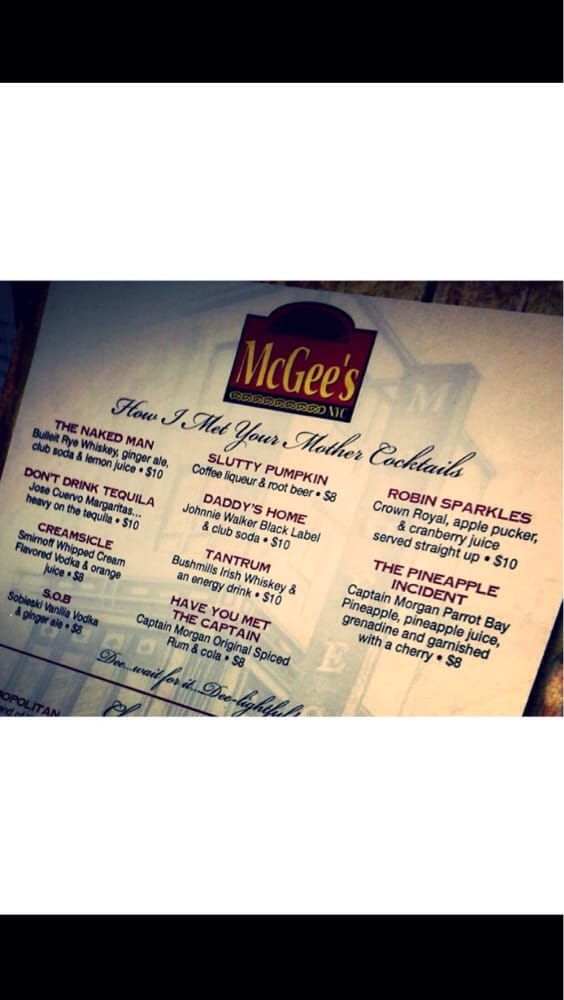 McGee's
NYC
How I Met Your Mother Cocktails
THE NAKED MAN
Bulleit Rye Whiskey, ginger ale,
club soda & lemon juice • $10
DON'T DRINK TEQUILA
Jose Cuervo Margaritas...
heavy on the tequila • $10
CREAMSICLE
Smirnoff Whipped Cream
Flavored Vodka & orange
juice • $8
S.O.B
Sobieski Vanilla Vodka
& ginger ale • $8
SLUTTY PUMPKIN
Coffee liqueur & root beer • $8
DADDY'S HOME
Johnnie Walker Black Label
& club soda • $10
TANTRUM
Bushmills Irish Whiskey &
an energy drink • $10
HAVE YOU MET
THE CAPTAIN
Captain Morgan Original Spiced
Rum & cola • $8
ROBIN SPARKLES
Crown Royal, apple pucker,
& cranberry juice
served straight up • $10
THE PINEAPPLE
INCIDENT
Captain Morgan Parrot Bay
Pineapple, pineapple juice,
grenadine and garnished
with a cherry • $8
Dee...wait for it...Dee-lightful!
OPOLITAN